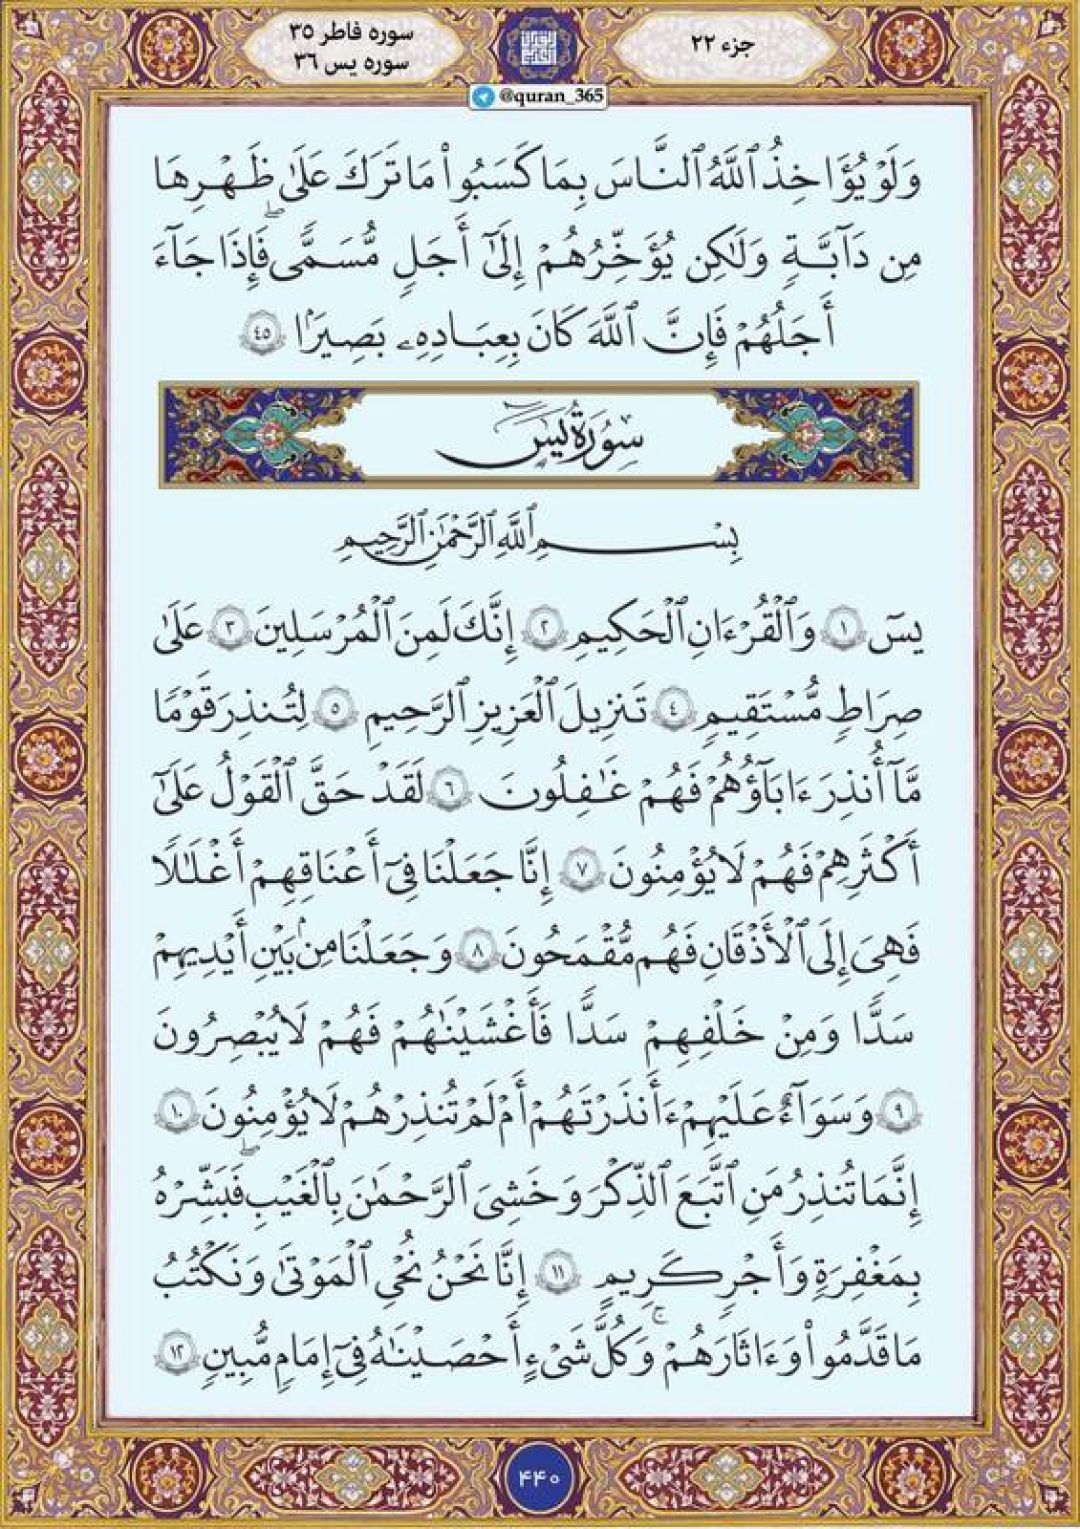 جزء ۲۲
سوره فاطر ۳۵
سوره یس ۳۶
@quran_365
وَلَوۡ يُؤَاخِذُ ٱللَّهُ ٱلنَّاسَ بِمَا كَسَبُواْ مَا تَرَكَ عَلَىٰ ظَهۡرِهَا
مِن دَآبَّةٖ وَلَٰكِن يُؤَخِّرُهُمۡ إِلَىٰٓ أَجَلٖ مُّسَمّٗىۖ فَإِذَا جَآءَ
أَجَلُهُمۡ فَإِنَّ ٱللَّهَ كَانَ بِعِبَادِهِۦ بَصِيرَۢا ٤٥
سُورَةُ يسٓ
بِسۡمِ ٱللَّهِ ٱلرَّحۡمَٰنِ ٱلرَّحِيمِ
يسٓ ١ وَٱلۡقُرۡءَانِ ٱلۡحَكِيمِ ٢ إِنَّكَ لَمِنَ ٱلۡمُرۡسَلِينَ ٣ عَلَىٰ
صِرَٰطٖ مُّسۡتَقِيمٖ ٤ تَنزِيلَ ٱلۡعَزِيزِ ٱلرَّحِيمِ ٥ لِتُنذِرَ قَوۡمٗا
مَّآ أُنذِرَ ءَابَآؤُهُمۡ فَهُمۡ غَٰفِلُونَ ٦ لَقَدۡ حَقَّ ٱلۡقَوۡلُ عَلَىٰٓ
أَكۡثَرِهِمۡ فَهُمۡ لَا يُؤۡمِنُونَ ٧ إِنَّا جَعَلۡنَا فِيٓ أَعۡنَٰقِهِمۡ أَغۡلَٰلٗا
فَهِيَ إِلَى ٱلۡأَذۡقَانِ فَهُم مُّقۡمَحُونَ ٨ وَجَعَلۡنَا مِنۢ بَيۡنِ أَيۡدِيهِمۡ
سَدّٗا وَمِنۡ خَلۡفِهِمۡ سَدّٗا فَأَغۡشَيۡنَٰهُمۡ فَهُمۡ لَا يُبۡصِرُونَ
٩ وَسَوَآءٌ عَلَيۡهِمۡ ءَأَنذَرۡتَهُمۡ أَمۡ لَمۡ تُنذِرۡهُمۡ لَا يُؤۡمِنُونَ ١٠
إِنَّمَا تُنذِرُ مَنِ ٱتَّبَعَ ٱلذِّكۡرَ وَخَشِيَ ٱلرَّحۡمَٰنَ بِٱلۡغَيۡبِۖ فَبَشِّرۡهُ
بِمَغۡفِرَةٖ وَأَجۡرٖ كَرِيمٍ ١١ إِنَّا نَحۡنُ نُحۡيِ ٱلۡمَوۡتَىٰ وَنَكۡتُبُ
مَا قَدَّمُواْ وَءَاثَٰرَهُمۡۚ وَكُلَّ شَيۡءٍ أَحۡصَيۡنَٰهُ فِيٓ إِمَامٖ مُّبِينٖ ١٢
۴۴۰